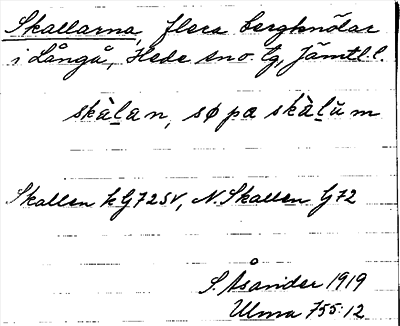 Skallarna, flera bergknölar
i Långå, Hede sn o. lg, Jämtl. l.
skàlan, sø pa skàlŭm
Skallen k G72SV, N. Skallen G72
S. Åsander 1919
Ulma 755:12